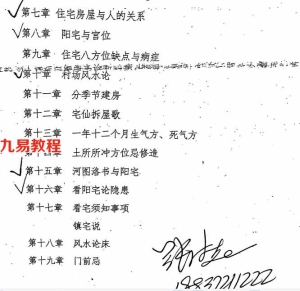 第七章 住宅房屋与人的关系
第八章 阳宅与宫位
第九章 住宅八方位缺点与病症
第十章 村场风水论
第十一章 分季节建房
第十二章 宅仙拆屋歌
第十三章 一年十二个月生气方、死气方
九易教程
土所所冲方位忌修造
第十五章 河图洛书与阳宅
第十六章 看阳宅论隐患
第十七章 看宅须知事项
镇宅说
第十八章 风水论床
第十九章 门前局
18837211222